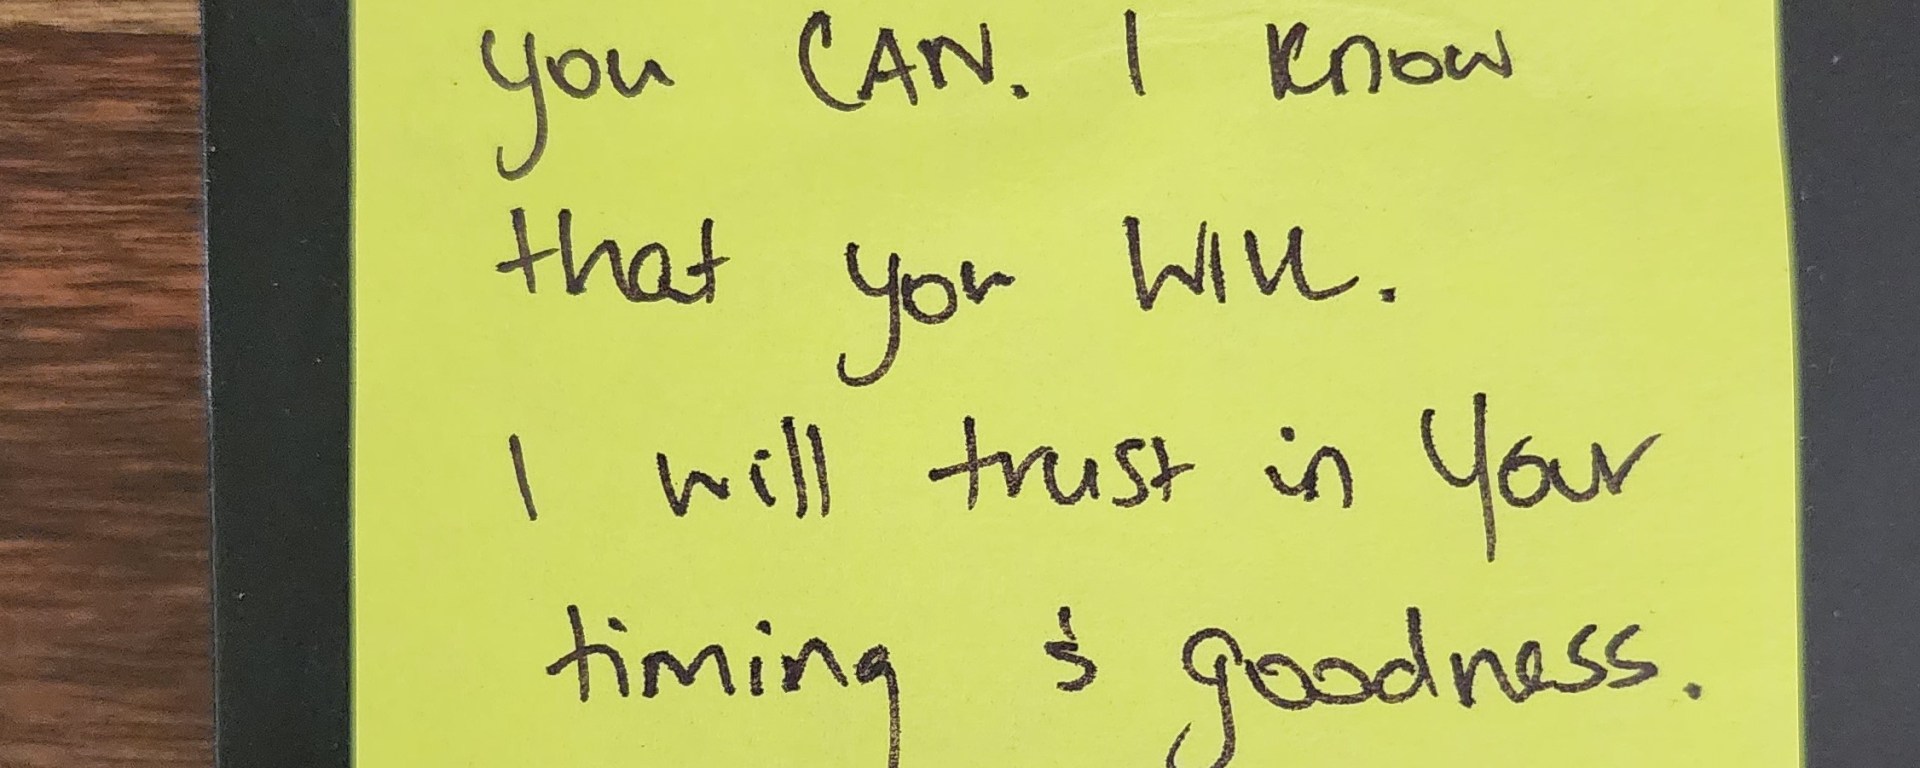 you CAN. I know
that you WILL.
I will trust in Your
timing & goodness.